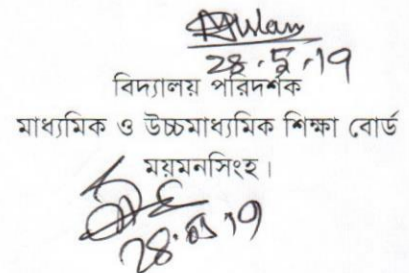 28.5.19
বিদ্যালয় পরিদর্শক
মাধ্যমিক ও উচ্চমাধ্যমিক শিক্ষা বোর্ড
ময়মনসিংহ।
28.05.19